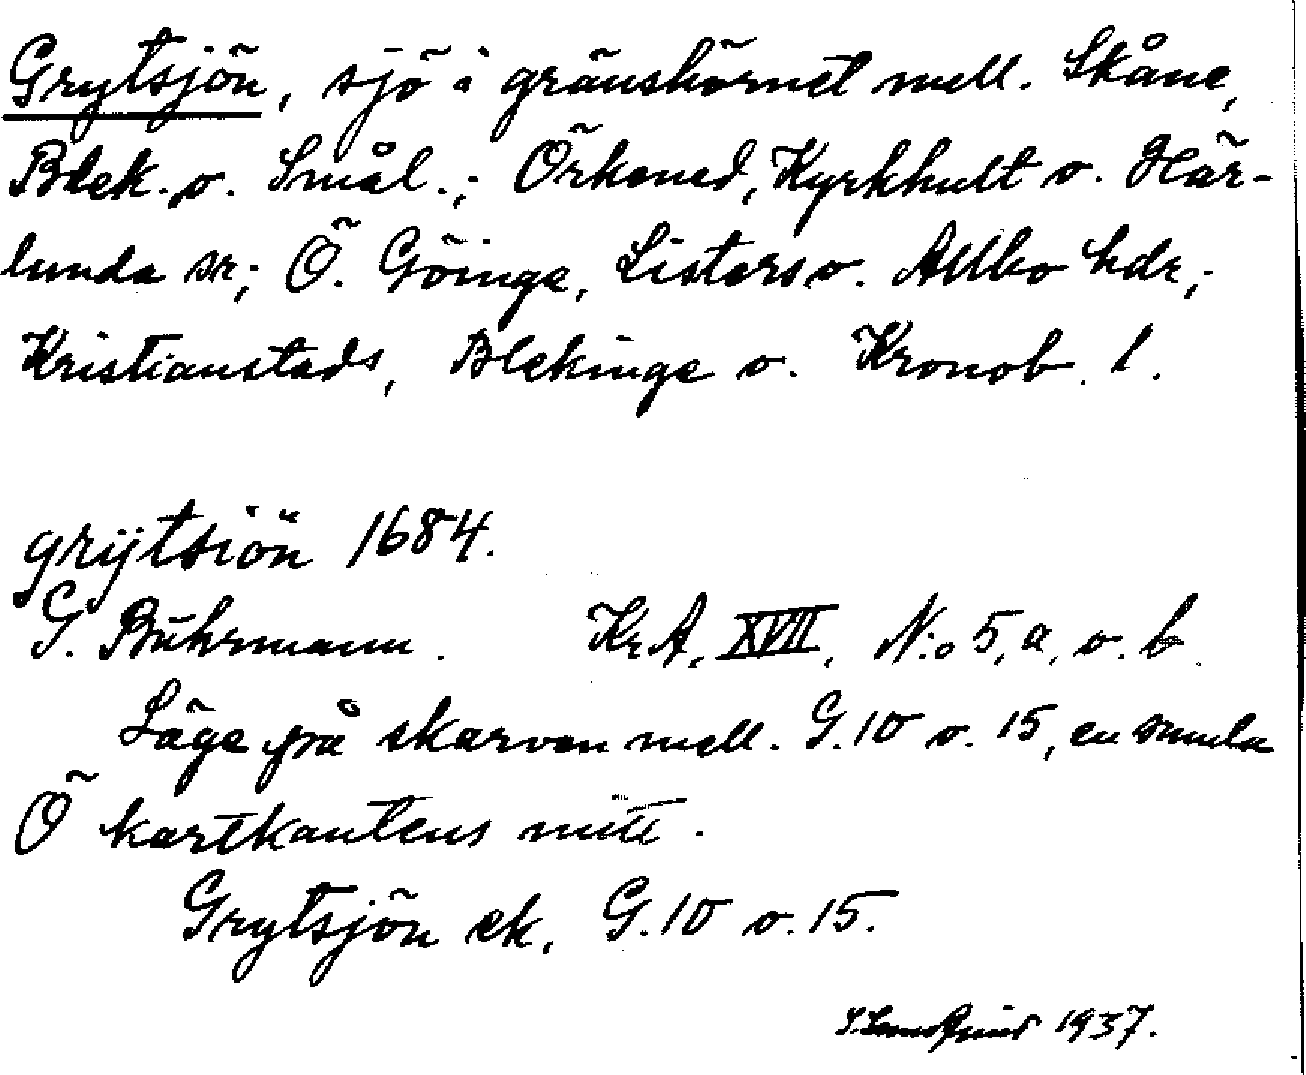 Grytsjön, sjö i gränshörnet mell. Skåne,
Blek. o. Smål.; Örkened, Kyrkhult o. Här-
lunda sr; Ö. Göinge, Listers o. Allbo hdr;
Kristianstads, Blekinge o. Kronob. l.
grijtsiön 1684.
G. Buhrmann. Kr.A. XVII, N:o 5, a, o. b.
Läge på skarven mell. G.10 o. 15, en smula
Ö kartkantens mitt.
Grytsjön ek. G.10 o. 15.
1937.